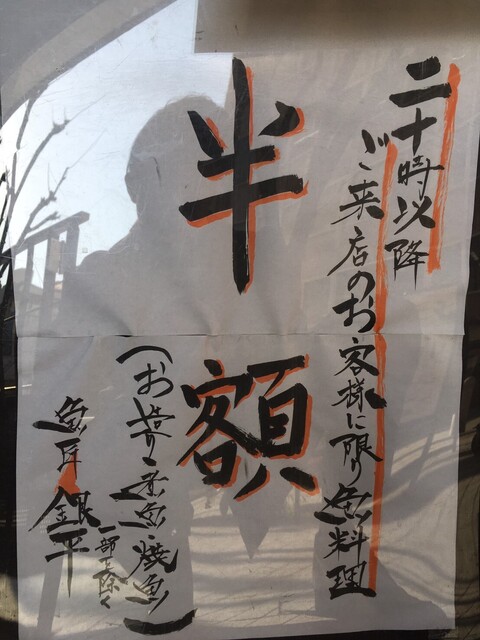 二十時以降
ご来店のお客様に限り魚料理
半額
(お造り・煮魚・焼魚)
一部を除く
魚匠 銀平